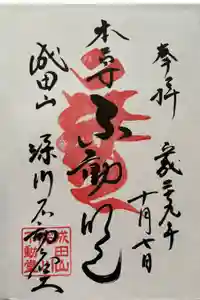 奉拝
平成二九年
十月七日
本尊 不動明王
成田山 深川不動堂
成田山
不動堂